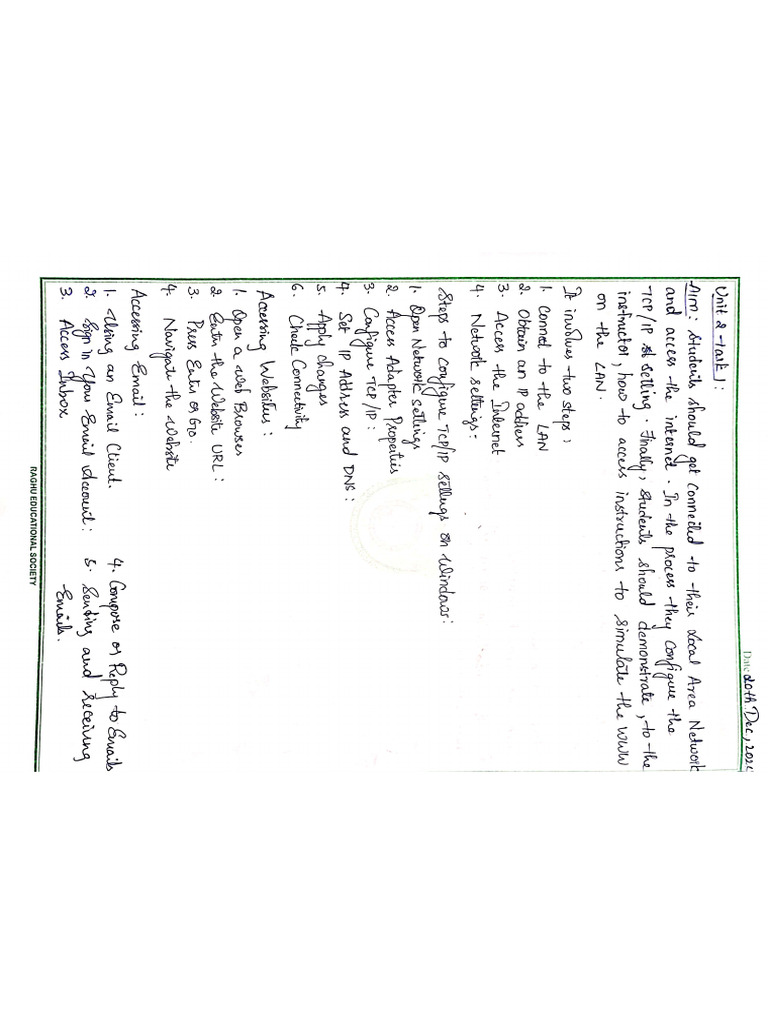 Date 20th Dec, 202
Unit 2 - Task 1:
Aim: Students should get connected to their Local Area Network
and access the internet. In the process they configure the
TCP/IP setting. Finally, students should demonstrate, to the
instructor, how to access instructions to simulate the WWW
on the LAN.
It involves two steps:
1. Connect to the LAN
2. Obtain an IP address
3. Access the Internet
4. Network settings:
Steps to configure TCP/IP settings on Windows:
1. Open Network settings
2. Access Adapter Properties
3. Configure TCP/IP:
4. Set IP Address and DNS:
5. Apply changes
6. Check Connectivity
Accessing Websites:
1. Open a Web Browser
2. Enter the Website URL:
3. Press Enter or Go.
4. Navigate the Website
Accessing Email:
1. Using an Email Client.
2. Sign in Your Email Account:
3. Access Inbox
4. Compose or Reply to Emails
5. Sending and Receiving
Emails.
RAGHU EDUCATIONAL SOCIETY